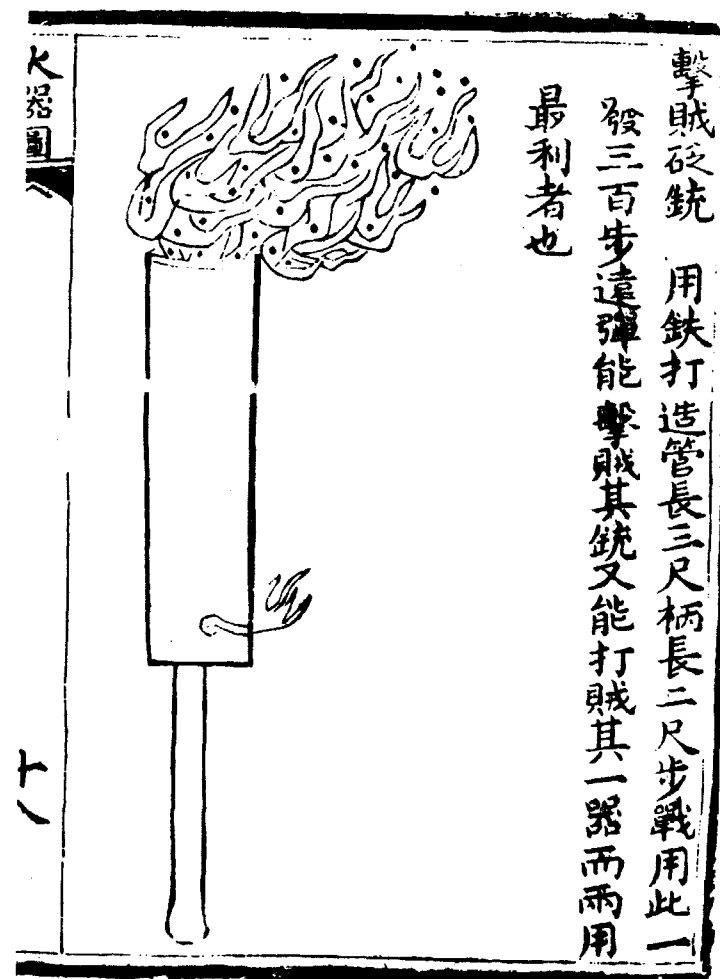 擊賊砭銃 用鉄打造管長三尺柄長二尺步戰用此一
發三百步遠彈能擊賊其銃又能打賊其一器而兩用
最利者也
火器圖
十八